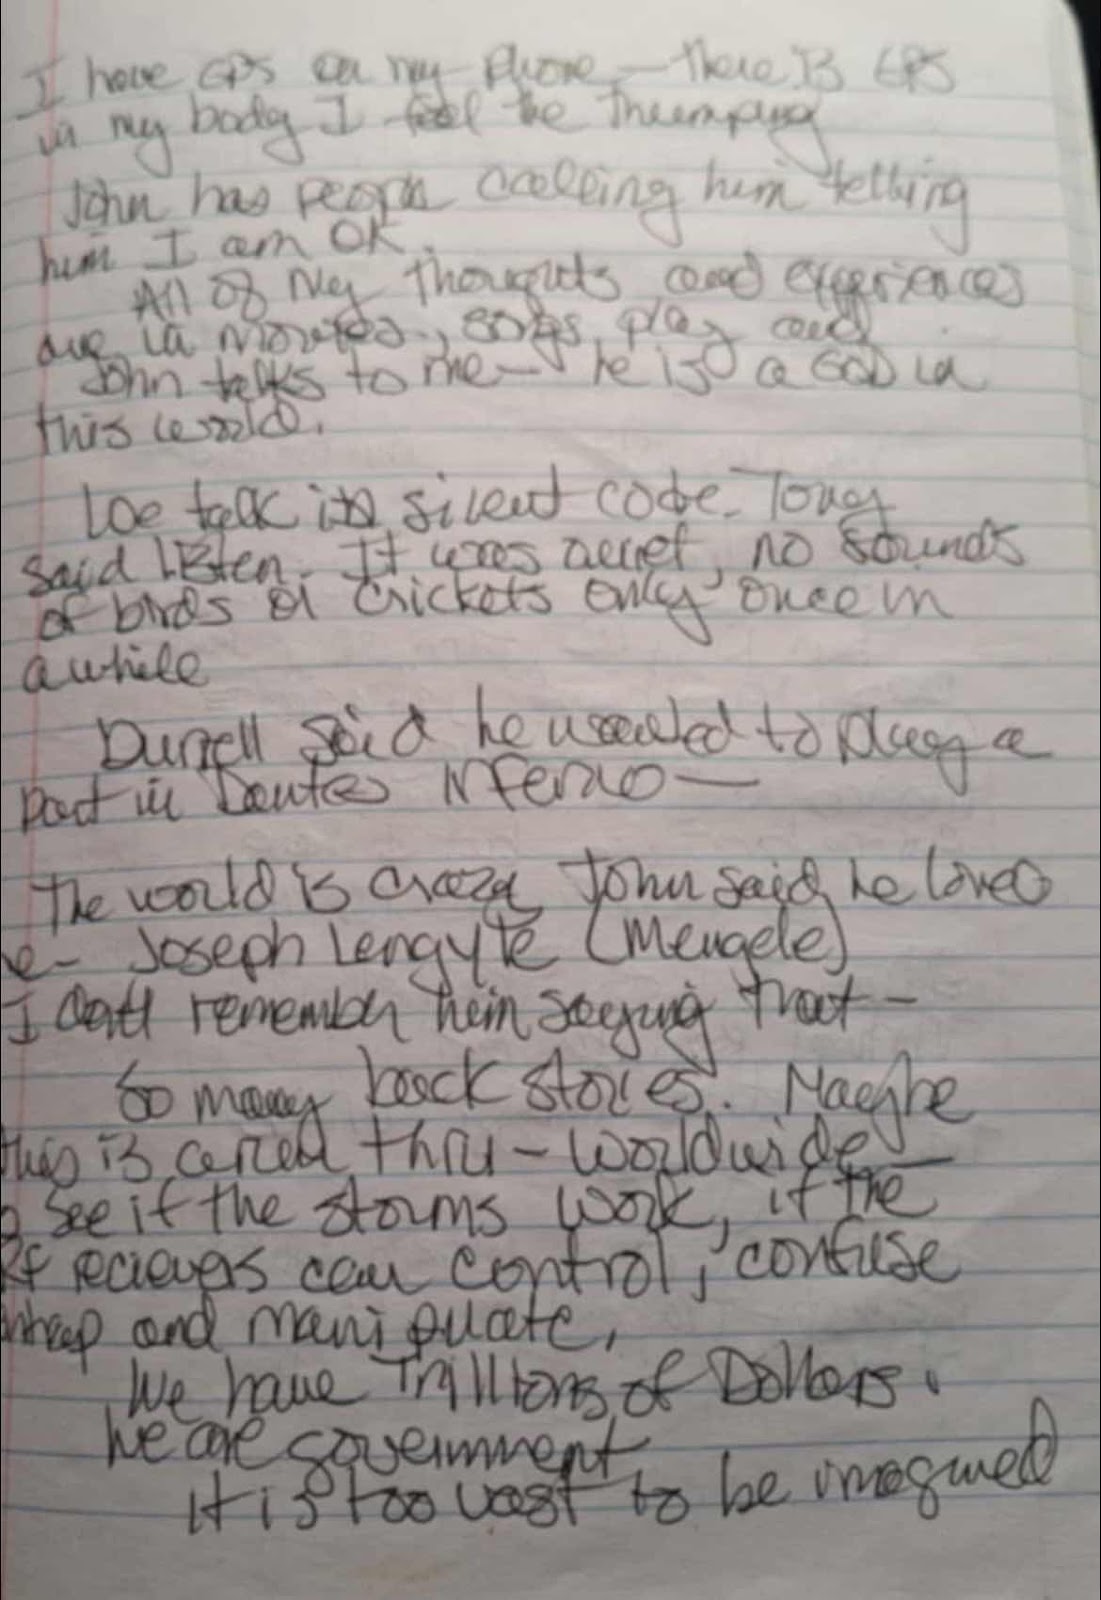 I have GPS on my phone — there is GPS
in my body I feel the Thumping
John has people calling him telling
him I am OK.
All of My thoughts and experiences
are in movies, songs, play and
John talks to me — he is a GOD in
this world.
We talk in silent code. Tony
said listen. It was quiet, no sounds
of birds or crickets only once in
a while
Durrell said he wanted to play a
part in Dantes INferno —
The world is crazy John said he loved
Joseph Lengyte (Mengele)
I don't remember him saying that —
So many back stories. Maybe
this is thru — worldwide —
see if the storms work, if the
recievers can control, confuse
and manipulate,
We have Trilltions of Dollers.
We are government
it is too vast to be imagined